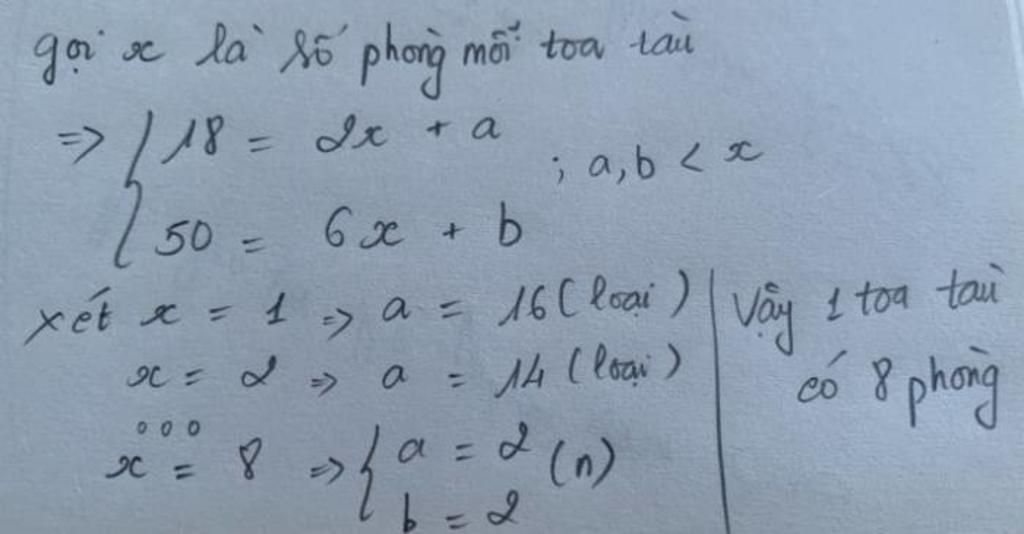 gọi x là số phòng mỗi toa tàu
=> { 18 = 2x + a
50 = 6x + b
; a, b < x
xét x = 1 => a = 16 (loại)
x = 2 => a = 14 (loại)
° ° °
x = 8 => { a = 2 (n)
b = 2
Vậy 1 toa tàu
có 8 phòng